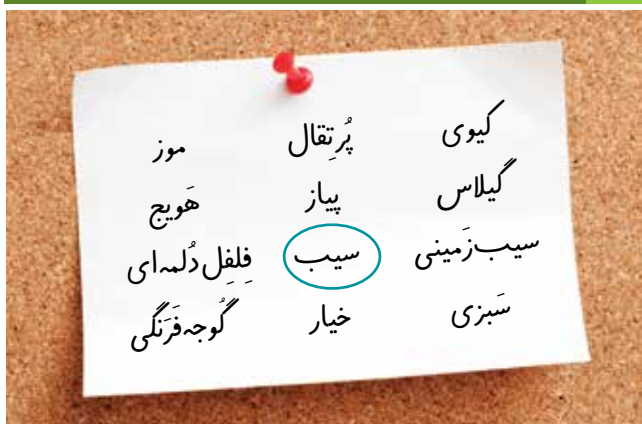 کیوی پُرتِقال موز
گیلاس پیاز هَویج
سیب‌زَمینی سیب فِلفِل دُلمه‌ای
سَبزی خیار گُوجه‌فَرَنگی